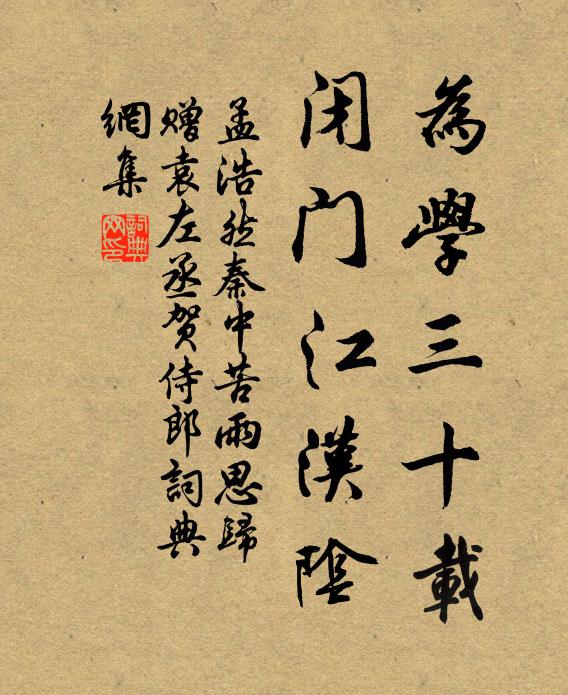 為學三十載
閉門江漢陰
孟浩然秦中苦雨思歸
贈袁左丞賀侍郎詞典
網集
詞典
网印